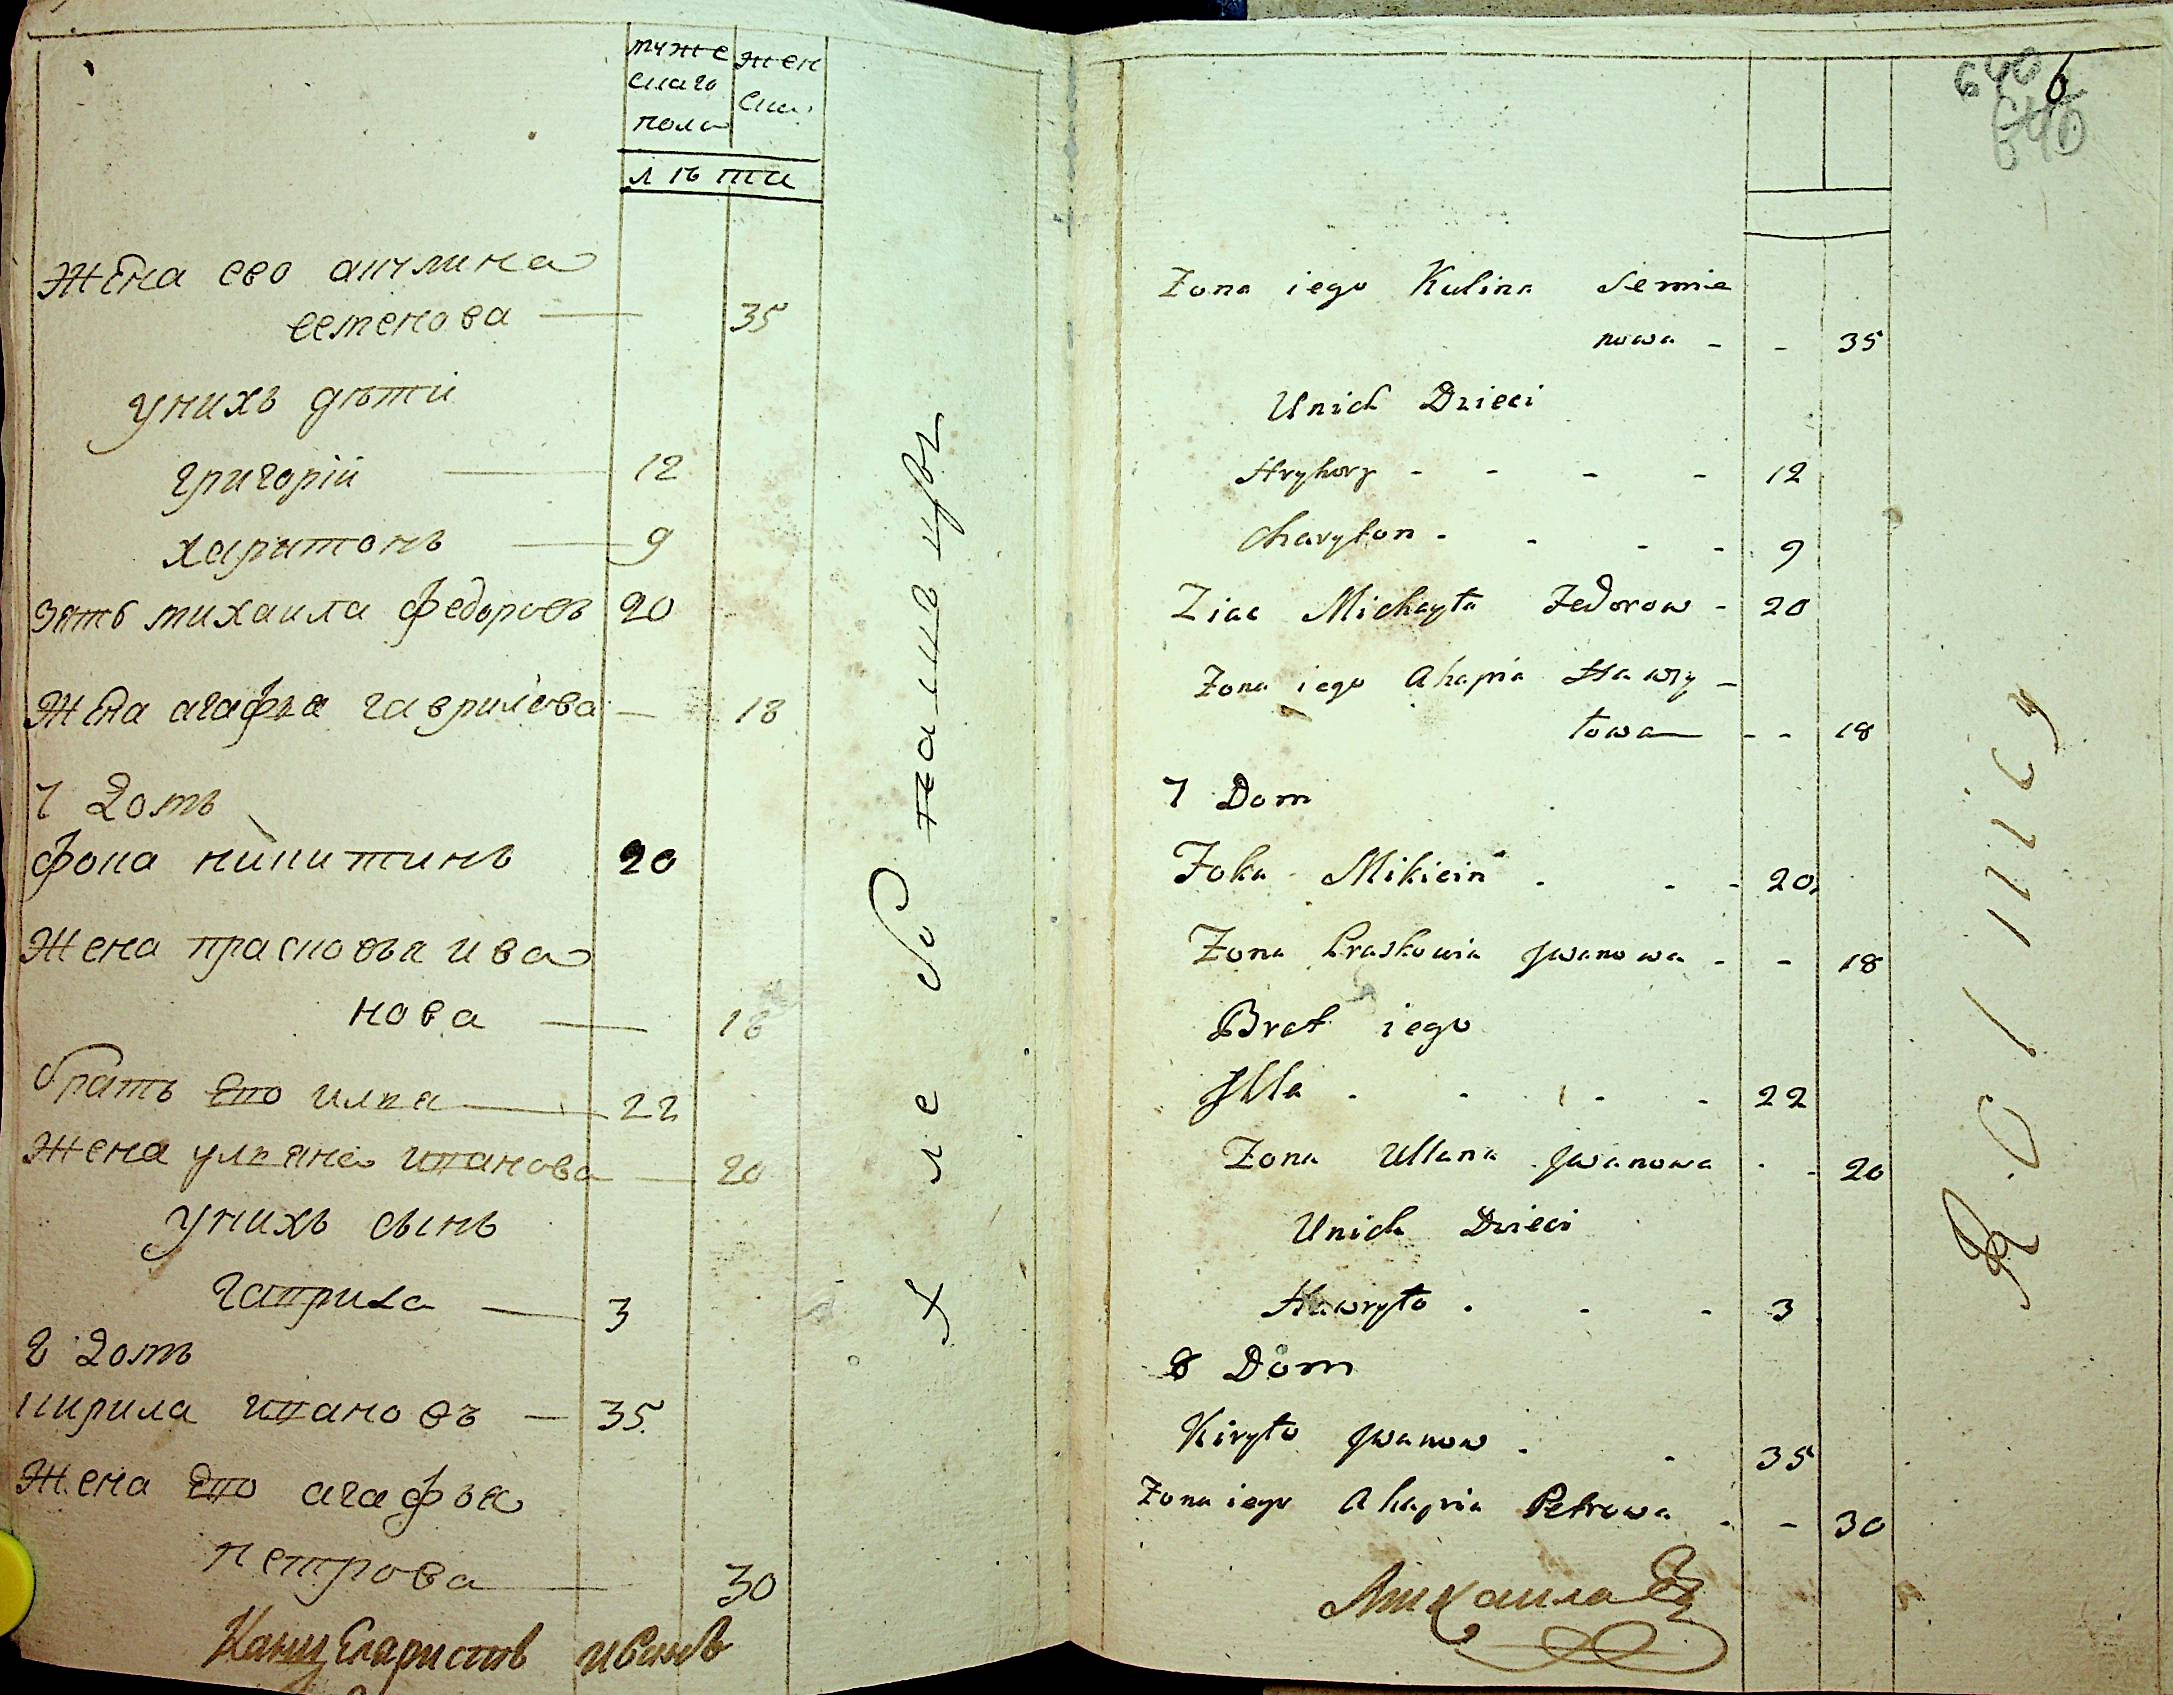 муже
скаго
пола
жен
ска.
лѣта
Жена ево акулина
семенова — 35
у нихъ дѣти
григорїи — 12
харитонъ — 9
зять михаила федоровъ 20
Жена агафья гаврилова — 18
7 домъ
фока никитинъ 20
Жена прасковья ива
нова — 18
братъ ево илья — 22
Жена ульяна иванова — 20
у нихъ сынъ
гаврила — 3
8 домъ
кирила ивановъ — 35
Жена ево агафья
петрова — 30
6
640
Zona iego Kulina Semie
nowa - - 35
Unich Dzieci
Hryhory - - - - 12
Charyton - - - - 9
Ziac Michayła Fedorow - 20
Zona iego Ahapia Hawry -
łowa - - 18
7 Dom
Foka Mikicin - - - 20
Zona Praskowia Jwanowa - - 18
Brat iego
Jlla - - - - 22
Zona Ullana Jwanowa - - 20
Unich Dzieci
Hawryło - - - 3
8 Dom
Kiryło Jwanow - - 35
Zona iego Ahapia Petrowa - - 30
Михаила